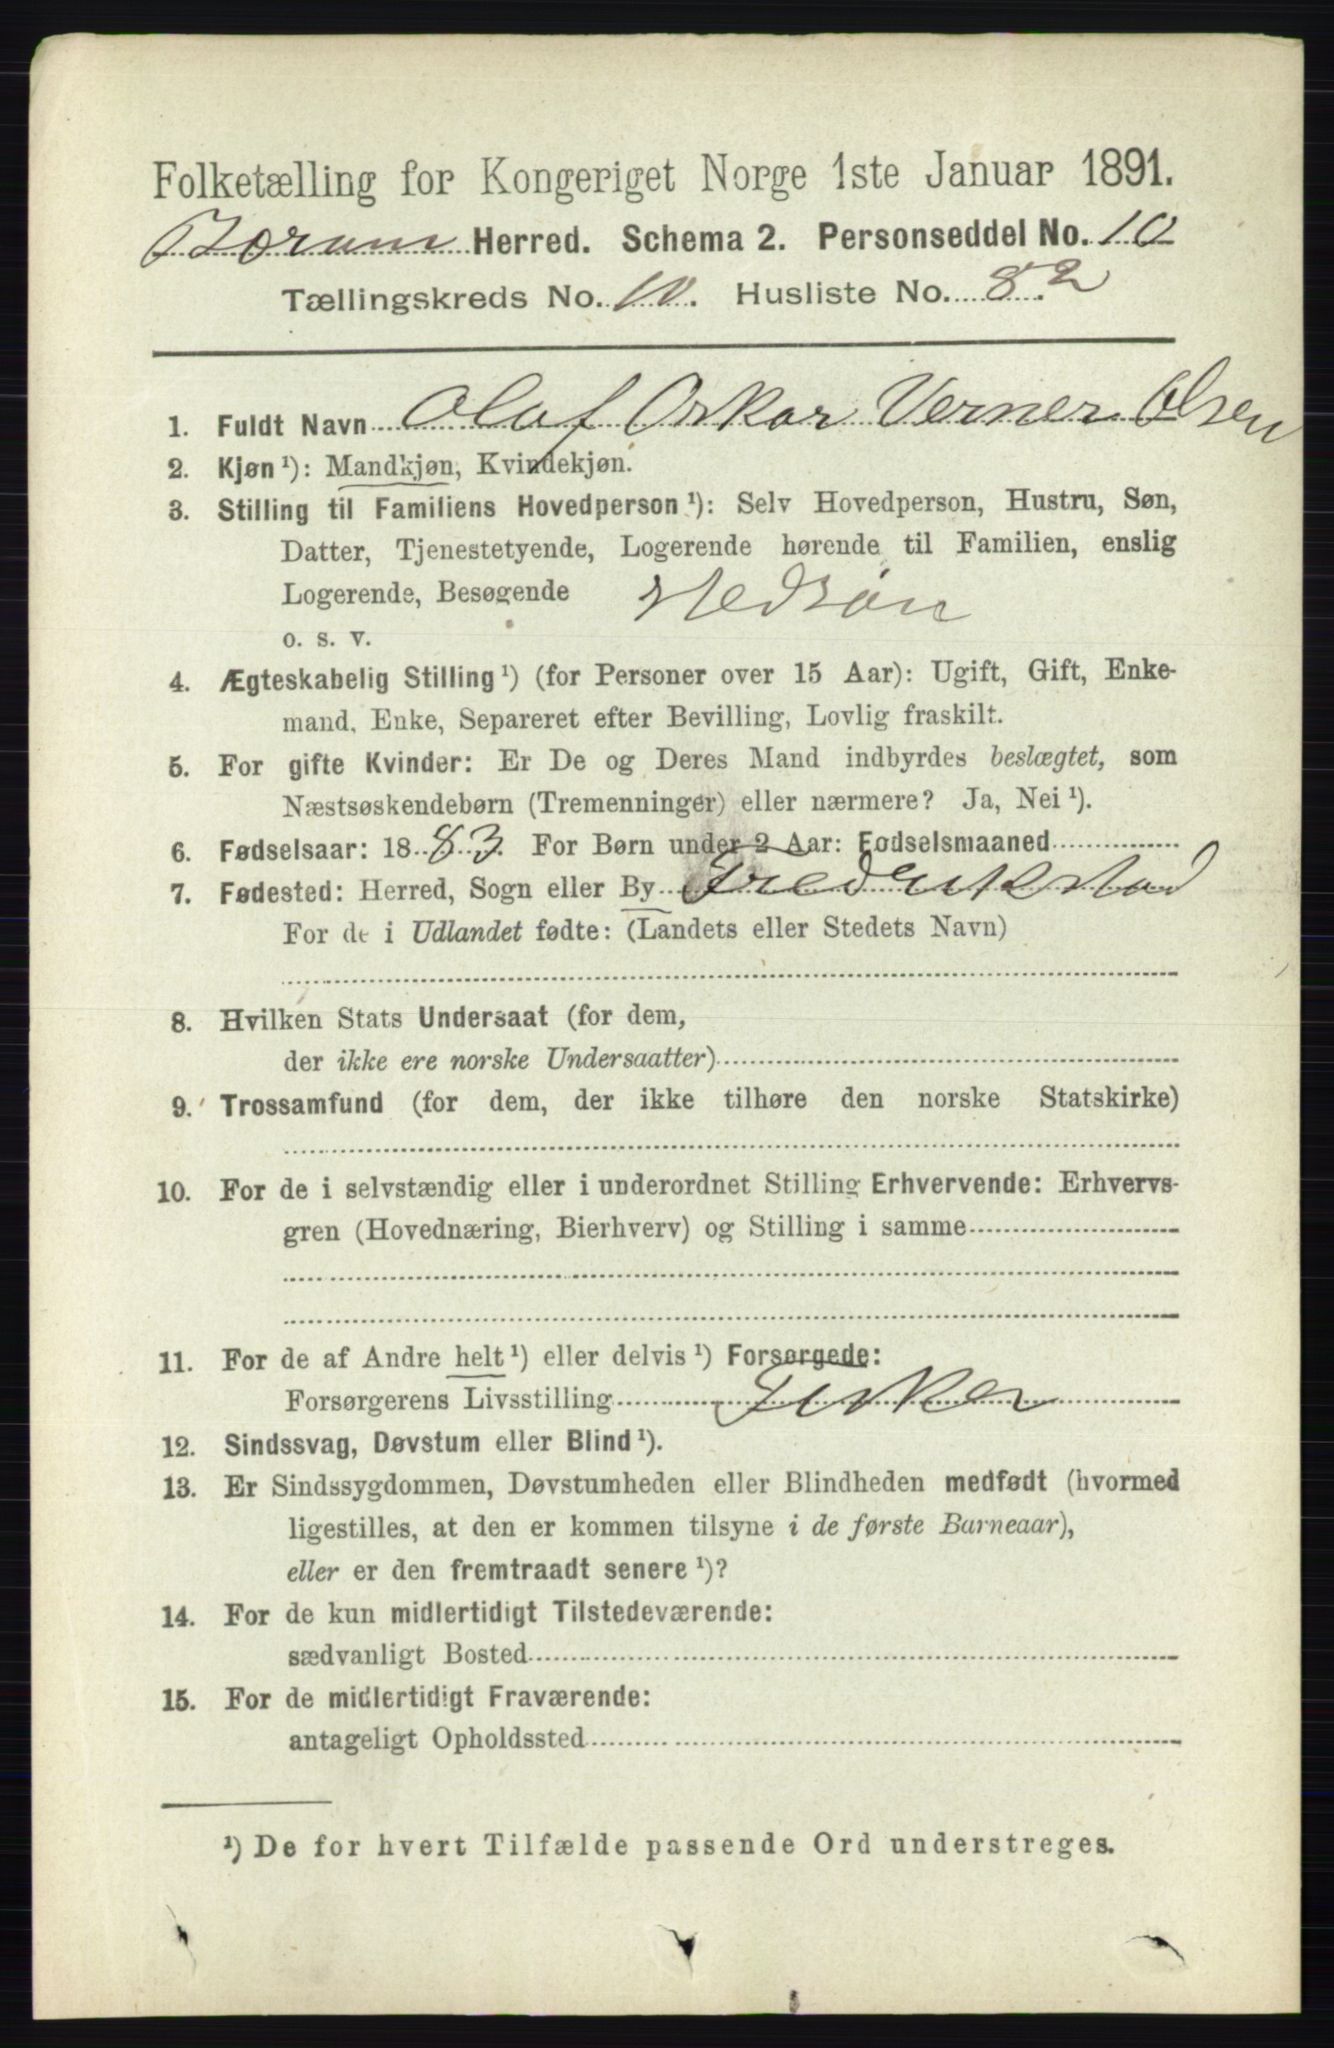 Folketælling for Kongeriget Norge 1ste Januar 1891.
Borum Herred. Schema 2. Personseddel No. 10
Tællingskreds No. 10. Husliste No. 82
1. Fuldt Navn Olaf Oskar Verner Olsen
2. Kjøn ¹): Mandkjøn, Kvindekjøn.
3. Stilling til Familiens Hovedperson ¹): Selv Hovedperson, Hustru, Søn,
Datter, Tjenestetyende, Logerende hørende til Familien, enslig
Logerende, Besøgende Stedsøn
o. s. v.
4. Ægteskabelig Stilling ¹) (for Personer over 15 Aar): Ugift, Gift, Enke-
mand, Enke, Separeret efter Bevilling, Lovlig fraskilt.
5. For gifte Kvinder: Er De og Deres Mand indbyrdes beslægtet, som
Næstsøskendebørn (Tremenninger) eller nærmere? Ja, Nei ¹).
6. Fødselsaar: 1883. For Børn under 2 Aar: Fødselsmaaned
7. Fødested: Herred, Sogn eller By Fredrikstad
For de i Udlandet fødte: (Landets eller Stedets Navn)
8. Hvilken Stats Undersaat (for dem,
der ikke ere norske Undersaatter)
9. Trossamfund (for dem, der ikke tilhøre den norske Statskirke)
10. For de i selvstændig eller i underordnet Stilling Erhvervende: Erhvervs-
gren (Hovednæring, Bierhverv) og Stilling i samme
11. For de af Andre helt ¹) eller delvis ¹) Forsørgede:
Forsørgerens Livsstilling Fisker
12. Sindssvag, Døvstum eller Blind ¹).
13. Er Sindssygdommen, Døvstumheden eller Blindheden medfødt (hvormed
ligestilles, at den er kommen tilsyne i de første Barneaar),
eller er den fremtraadt senere ¹)?
14. For de kun midlertidigt Tilstedeværende:
sædvanligt Bosted
15. For de midlertidigt Fraværende:
antageligt Opholdssted
¹) De for hvert Tilfælde passende Ord understreges.